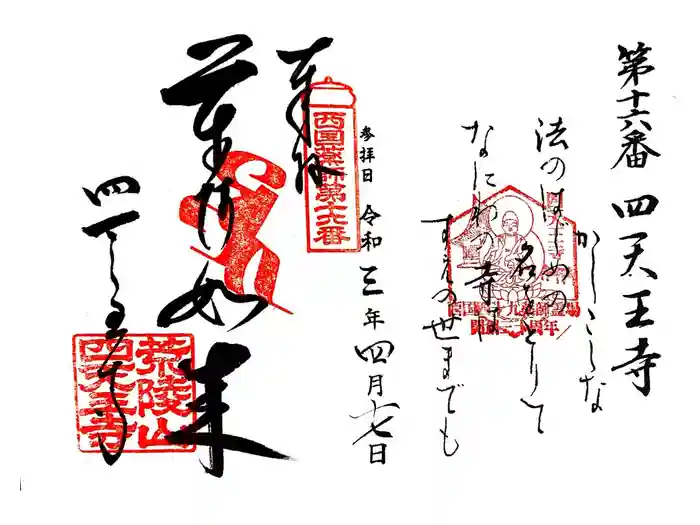 第十六番 四天王寺
かしこしな
法のはじめの
名をとりて
なにわの寺は
すえの世までも
参拝日 令和三年四月七日
奉拝
西国薬師第十六番
薬師如来
四天王寺
荒陵山
四天王寺